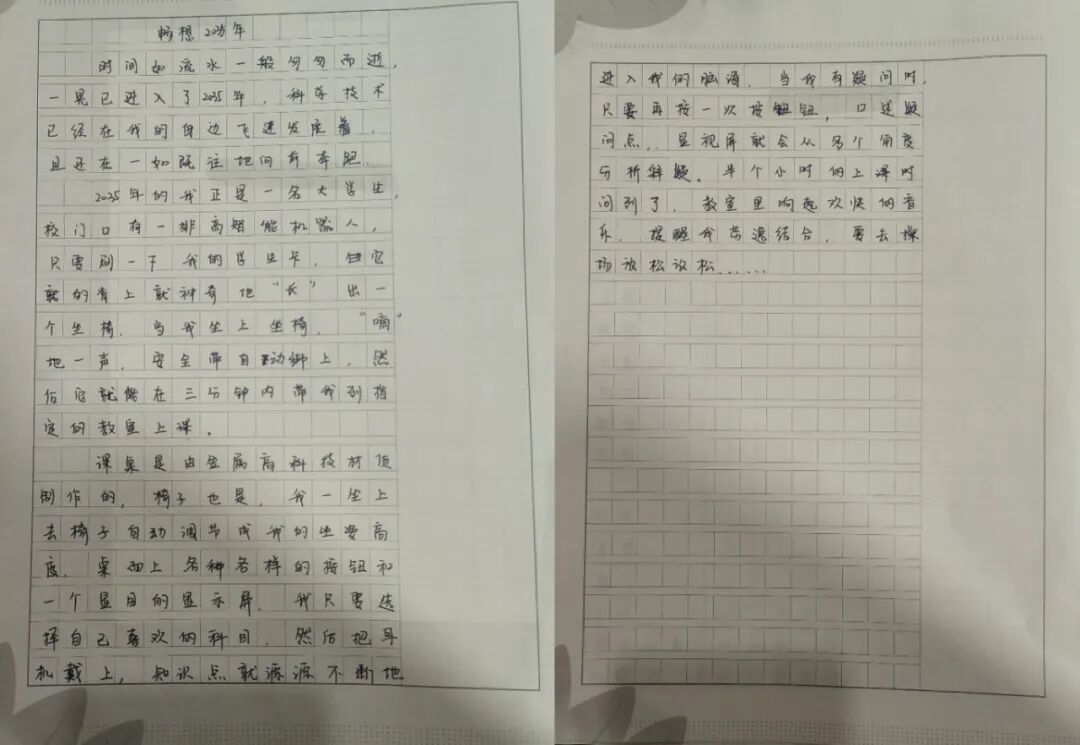 畅想2035年
时间如流水一般匆匆而逝，
一晃已进入了2035年，科学技术
已经在我的身边飞速发展着，
且还在一如既往地向前奔跑．
2035年的我正是一名大学生，
校门口有一排高智能机器人，
只要刷一下我的学生卡，它
的背上就神奇地“长”出一
个坐椅．当我坐上坐椅，“嘀”
地一声，安全带自动绑上，然
后它就能在三分钟内带我到指
定的教室上课．
课桌是由金属高科技材质
制作的，椅子也是，我一坐上
去椅子自动调节成我的坐姿高
度．桌面上各种各样的按钮和
一个显目的显示屏．我只要选
择自己喜欢的科目，然后把耳
机戴上，知识点就源源不断地
进入我的脑海．当我有疑问时，
只要再按一次按钮，口述疑
问点，显视屏就会从多个角度
分析释疑．半个小时的上课时
间到了，教室里响起欢快的音
乐，提醒我劳逸结合，要去操
场放松放松……